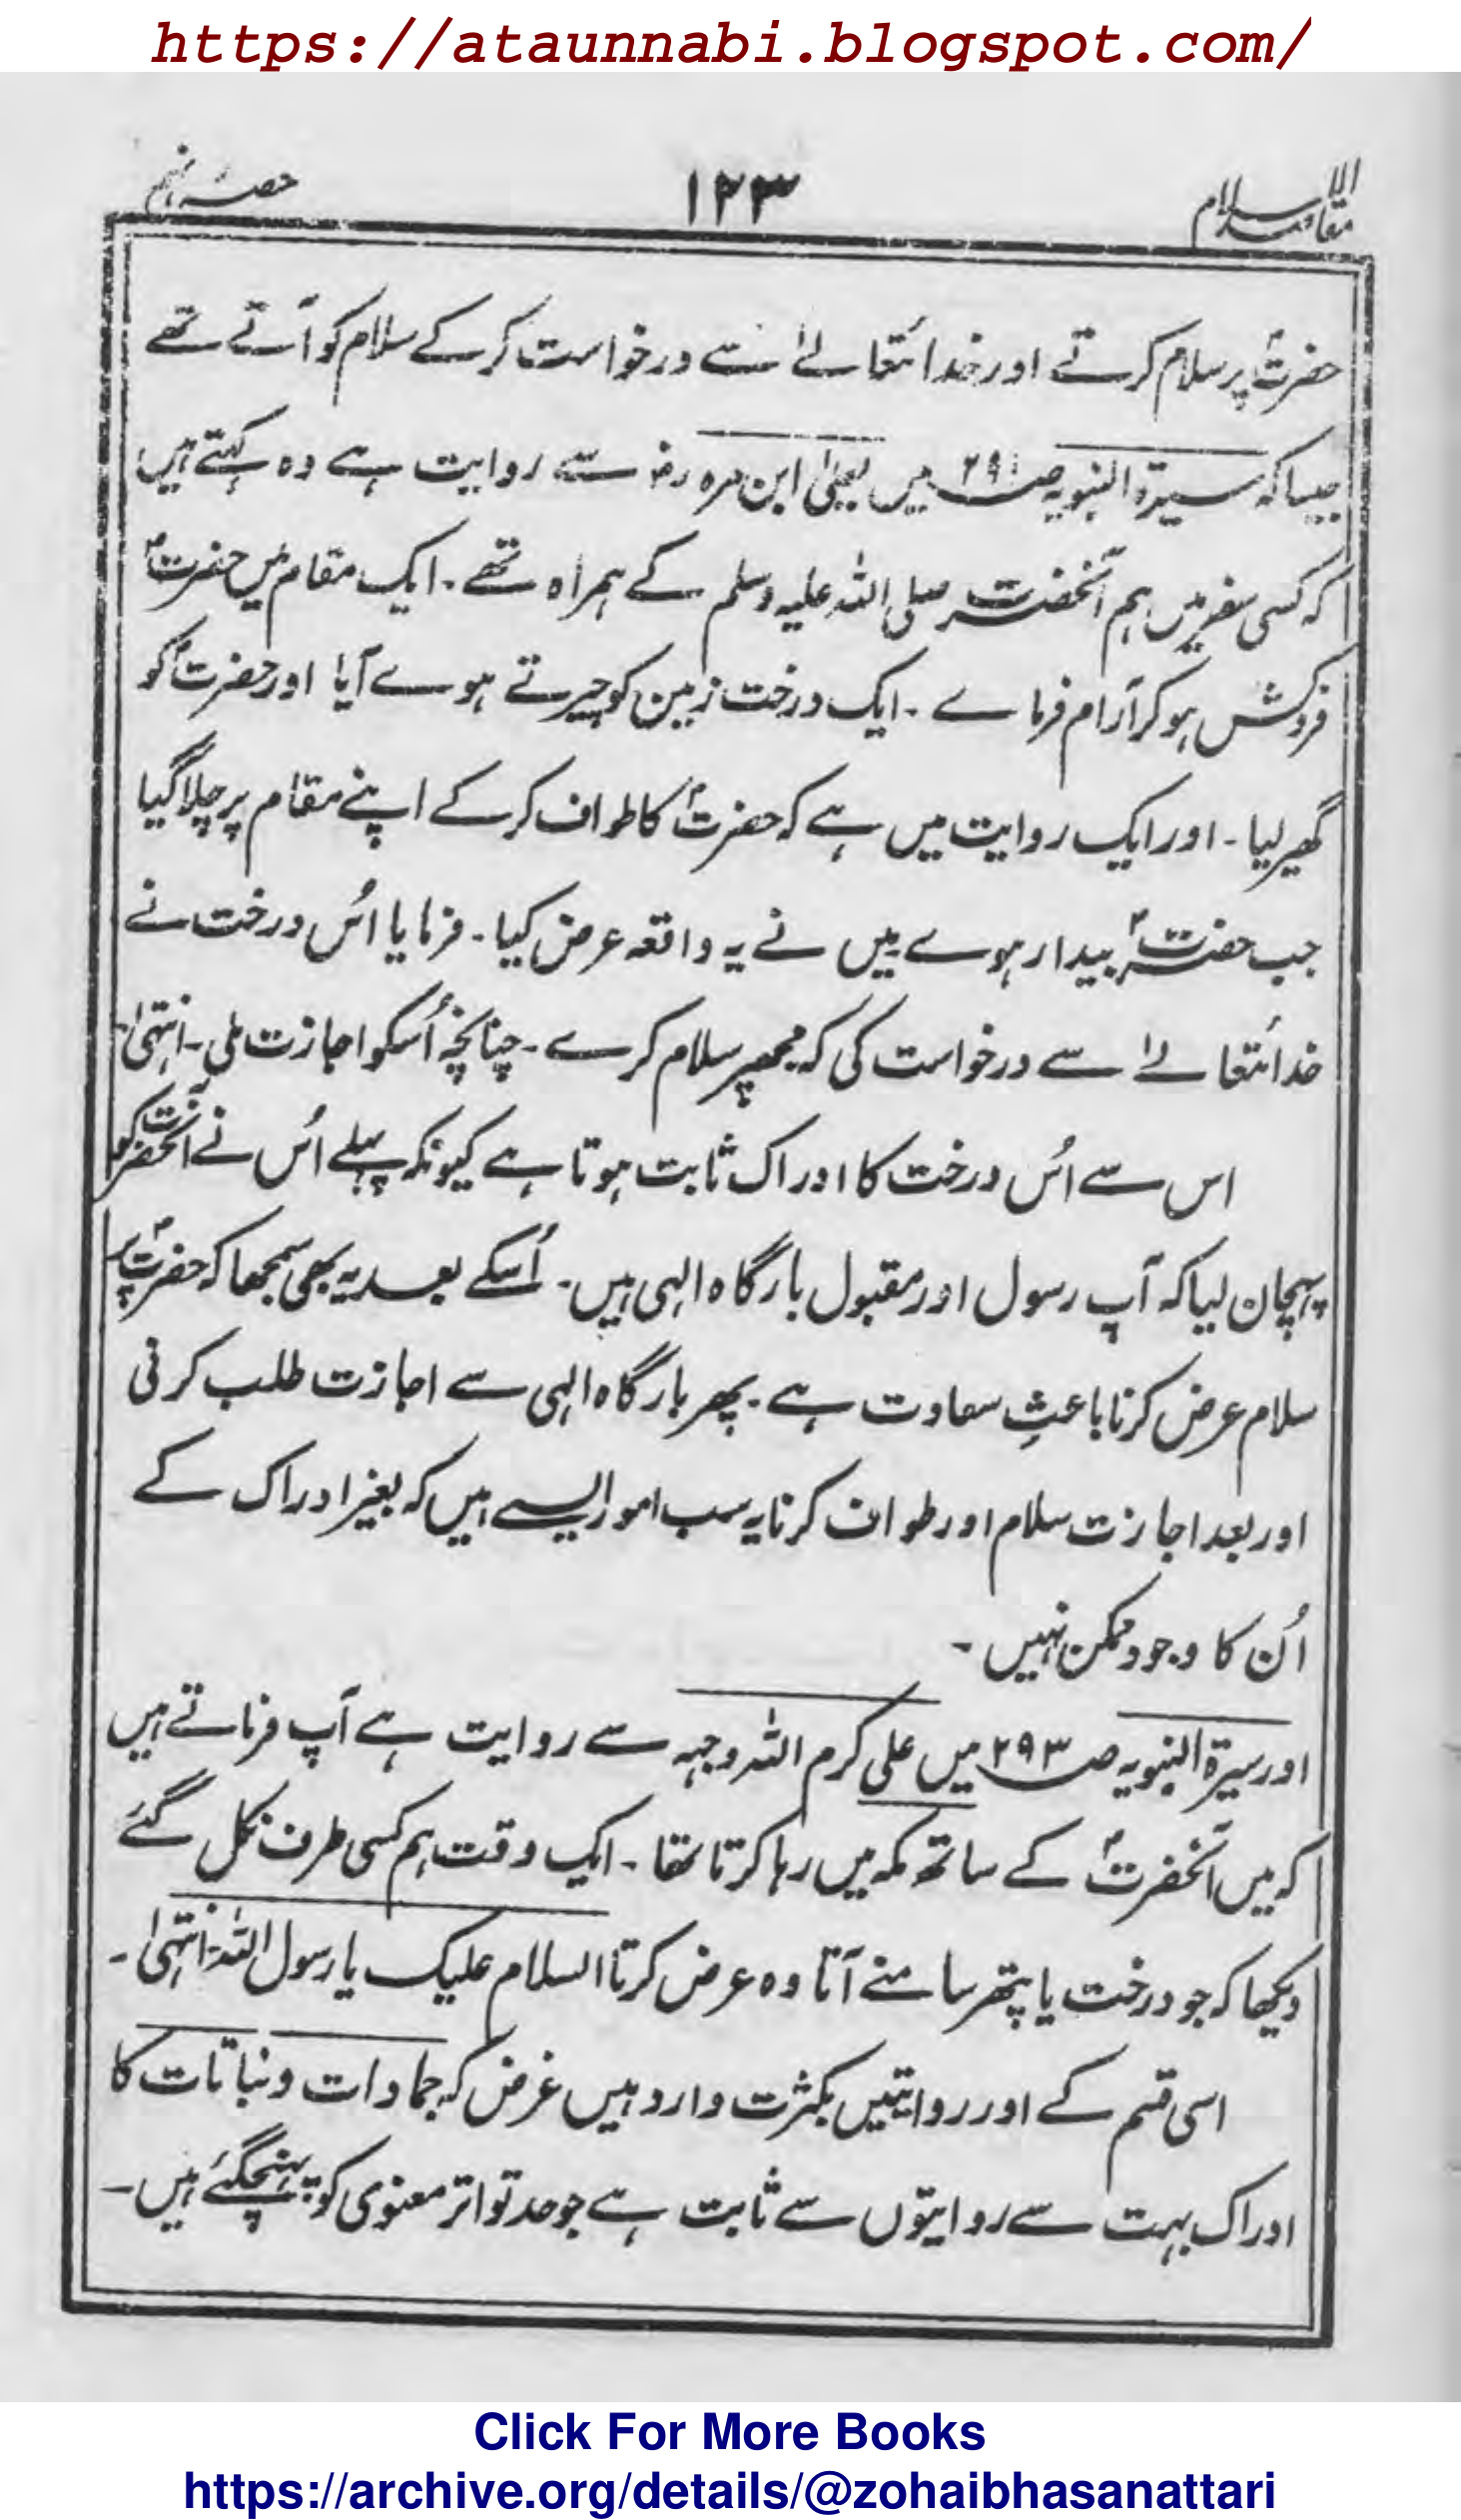 https://ataunnabi.blogspot.com/
مقاصد الاسلام ۱۲۳ حصہ نہم
حضرتؐ پر سلام کرتے اور خدائتعالےٰ سے درخواست کرکے سلام کو آتے تھے
جیسا کہ سیرۃ النبویہ صـ۲۹ میں یعلیٰ ابن مرہ رضہ سے روایت ہے وہ کہتے ہیں
کہ کسی سفر میں ہم آنحضرت صلی اللہ علیہ وسلم کے ہمراہ تھے ۔ ایک مقام میں حضرتؐ
فروکش ہوکر آرام فرماے ۔ ایک درخت زمین کو چیرتے ہوے آیا اور حضرتؐ کو
گھیر لیا ۔ اور ایک روایت میں ہے کہ حضرتؐ کا طواف کرکے اپنے مقام پر چلا گیا
جب حضرتؐ بیدار ہوے میں نے یہ واقعہ عرض کیا ۔ فرمایا اُس درخت نے
خدائتعالےٰ سے درخواست کی کہ مجھپر سلام کرے ۔ چنانچہ اُسکو اجازت ملی ۔ انتہیٰ
اس سے اُس درخت کا ادراک ثابت ہوتا ہے کیونکہ پہلے اُس نے آنحضرت کو
پہچان لیا کہ آپ رسول اور مقبول بارگاہ الہی ہیں ۔ اُسکے بعد یہ بھی سمجھا کہ حضرتؐ پر
سلام عرض کرنا باعثِ سعادت ہے ۔ پھر بارگاہ الہی سے اجازت طلب کرنی
اور بعد اجازت سلام اور طواف کرنا یہ سب امور ایسے ہیں کہ بغیر ادراک کے
اُن کا وجود ممکن نہیں ۔
اور سیرۃ النبویہ صـ۲۹۳ میں علی کرم اللہ وجہہ سے روایت ہے آپ فرماتے ہیں
کہ میں آنحضرتؐ کے ساتھ مکہ میں رہا کرتا تھا ۔ ایک وقت ہم کسی طرف نکل گئے
دیکھا کہ جو درخت یا پتھر سامنے آتا وہ عرض کرتا السلام علیک یا رسول اللہ انتہیٰ ۔
اسی قسم کے اور روایتیں بکثرت وارد ہیں غرض کہ جمادات و نباتات کا
ادراک بہت سے روایتوں سے ثابت ہے جو حد تواتر معنوی کو پہنچگئے ہیں ۔
Click For More Books
https://archive.org/details/@zohaibhasanattari